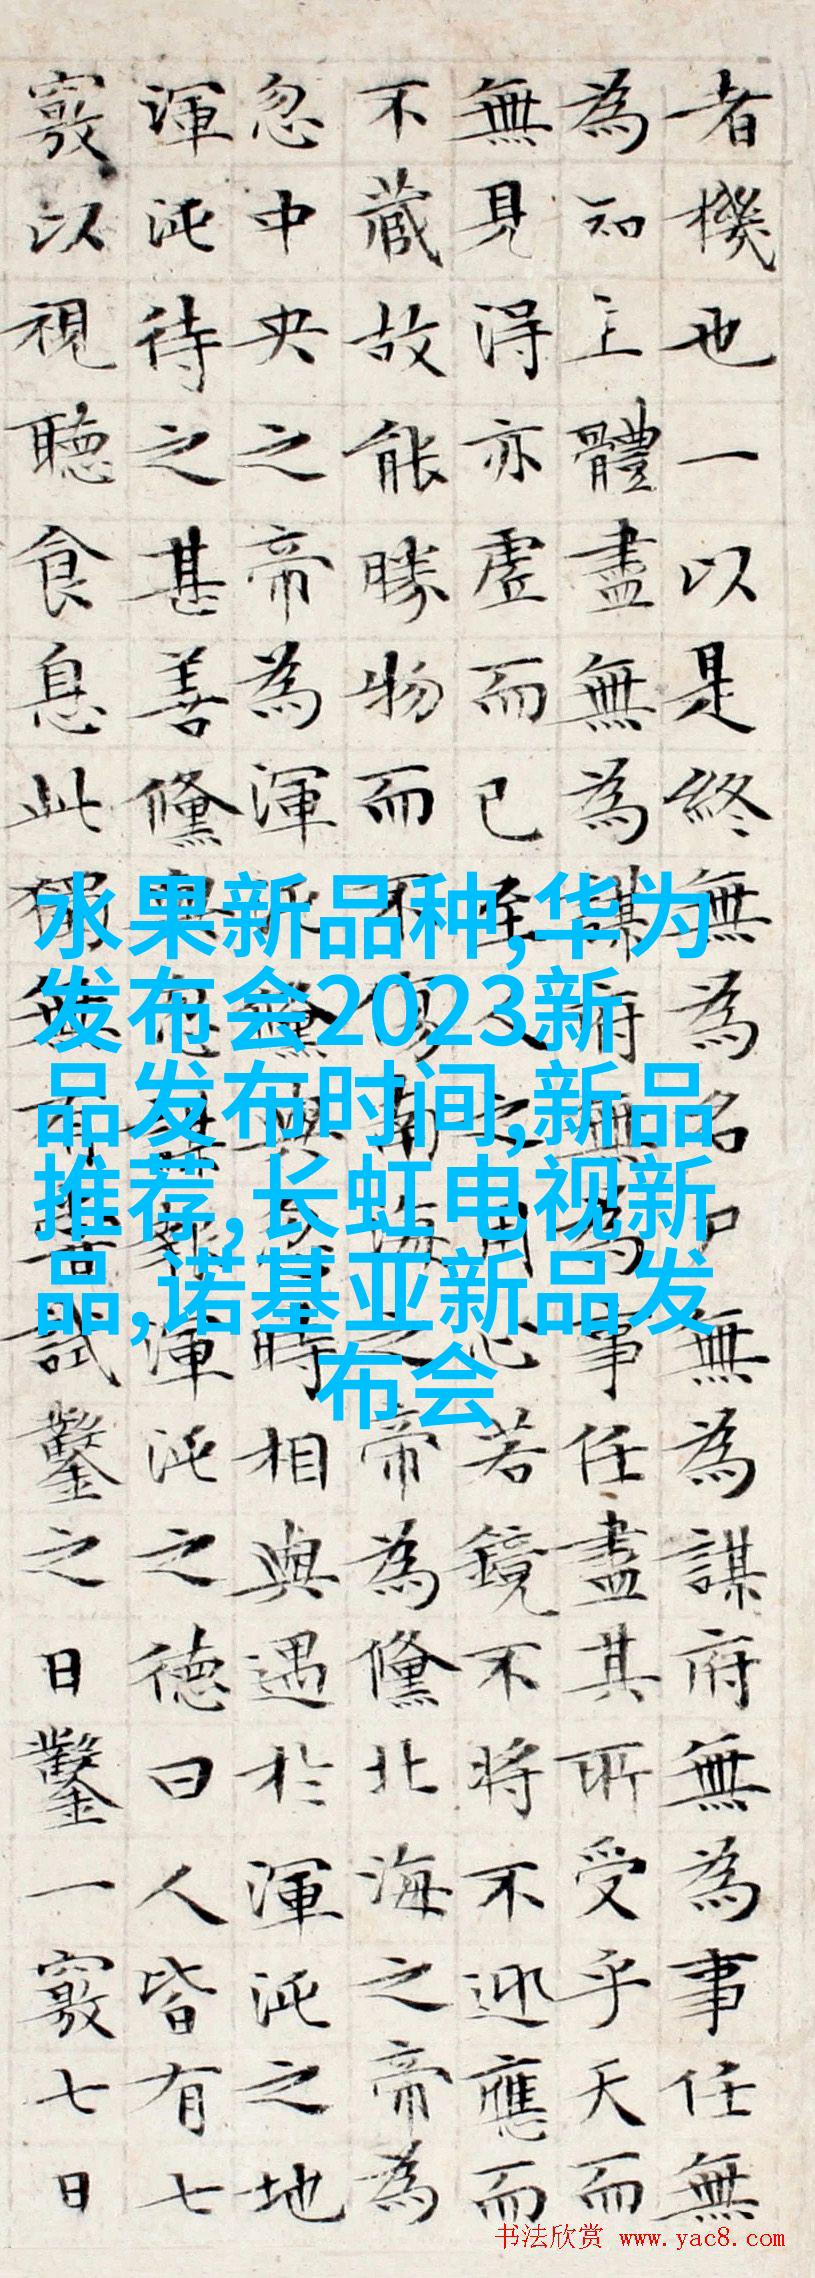 者機也一以是終無為名尸無為謀府無為事任無
為知主體盡無為謀府無為事任盡其所受乎天而
無見得亦虛而已至人之用心若鏡不將不迎應而
不藏故能勝物而不傷南海之帝為儵北海之帝為
忽中央之帝為渾沌儵與忽時相與遇於渾沌之地
渾沌待之甚善儵與忽謀報渾沌之德曰人皆有七
竅以視聽食息此獨無有嘗試鑿之日鑿一竅七日
水果新品种,华为
发布会2023新
品发布时间,新品
推荐,长虹电视新
品,诺基亚新品发
布会
书法欣赏 www.yac8.com